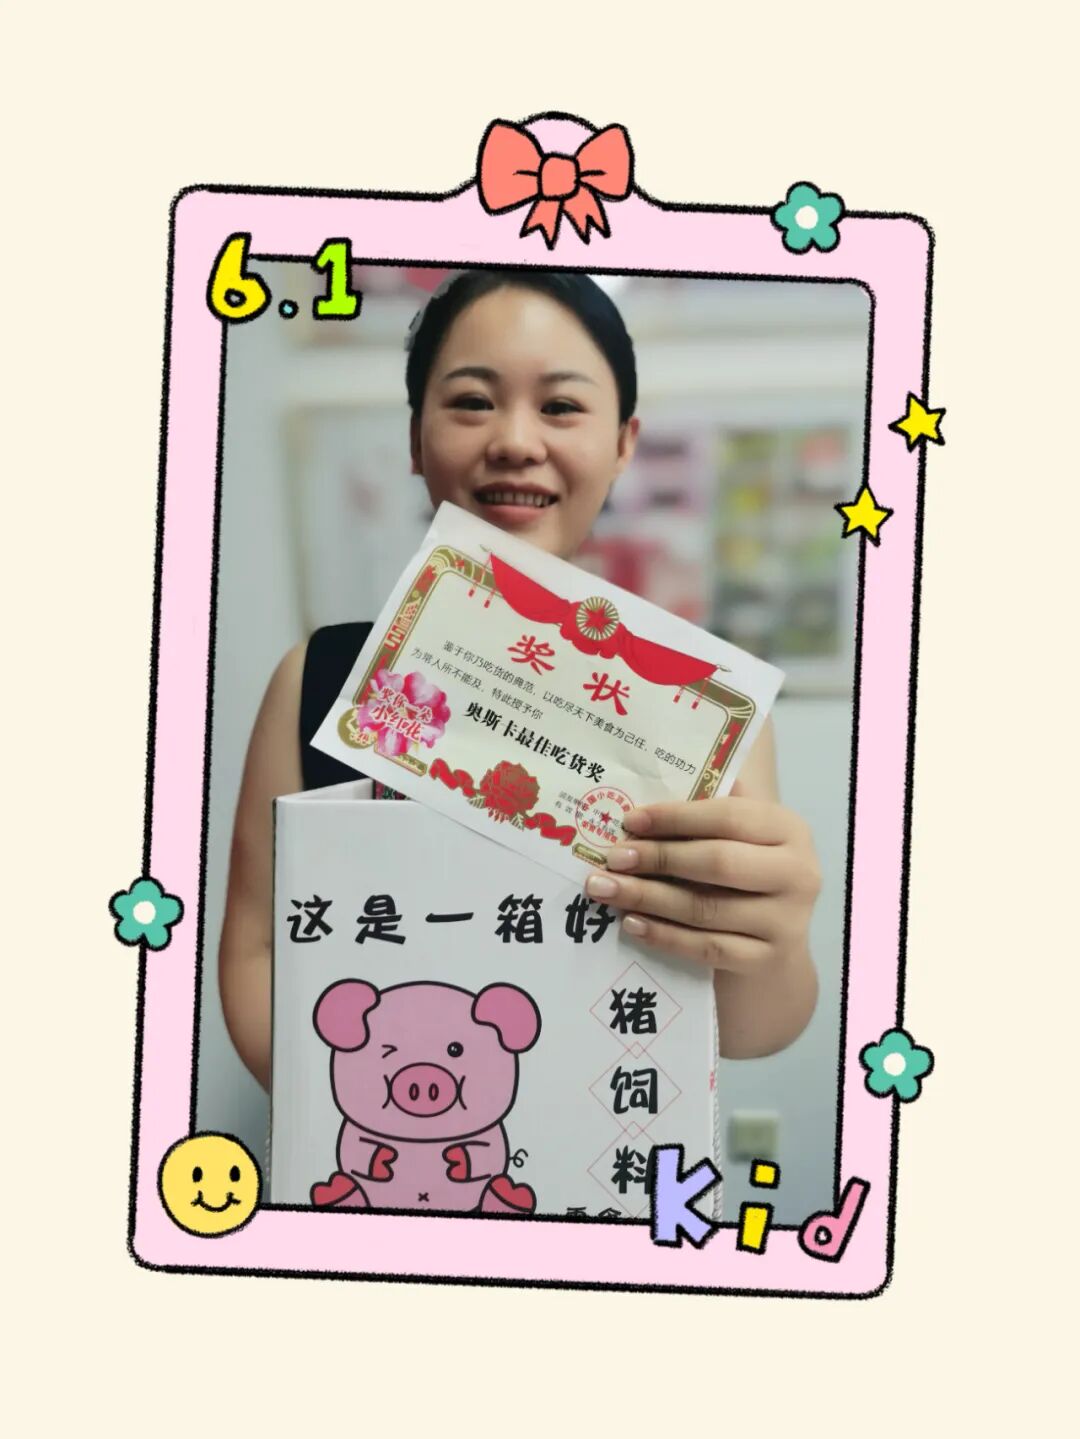 6.1
奖状
鉴于你乃吃货的典范，以吃尽天下美食为己任，吃的功力
为常人所不能及，特此授予你
奥斯卡最佳吃货奖
奖你一朵
小红花
这是一箱好
猪
饲
料
kid